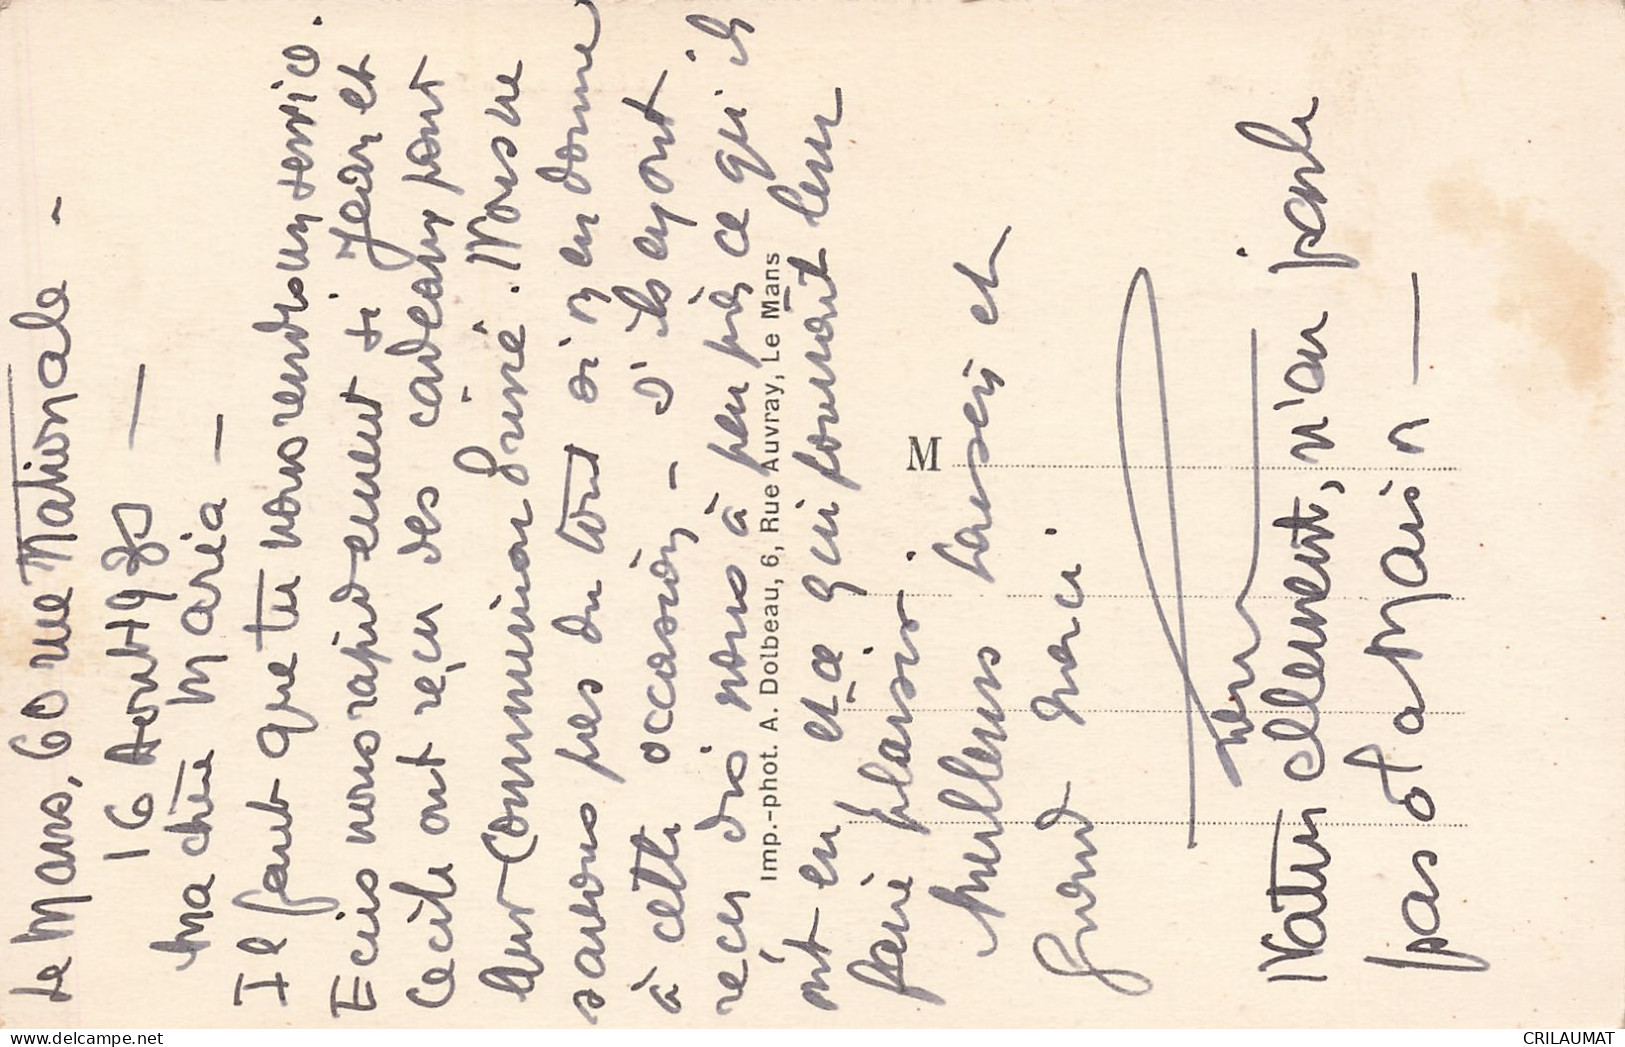 Le Mans, 60 rue Nationale -
16 Août 1935 —
Ma chère Maria -
Il faut que tu nous rendes un service.
Ecris nous rapidement si Jean et
Cecile ont reçu des cadeaux pour
leur Communion privée. Nous ne
savons pas du tout si on en donne
à cette occasion - S'ils en ont
reçu dis nous à peu près ce qu'ils
ont eu et ce qui pourrait leur
faire plaisir.
Meilleurs baisers et
Grand merci
Naturellement, n'en parle
pas à Maman —
M
Imp.-phot. A. Dolbeau, 6, Rue Auvray, Le Mans
CRILAUMAT